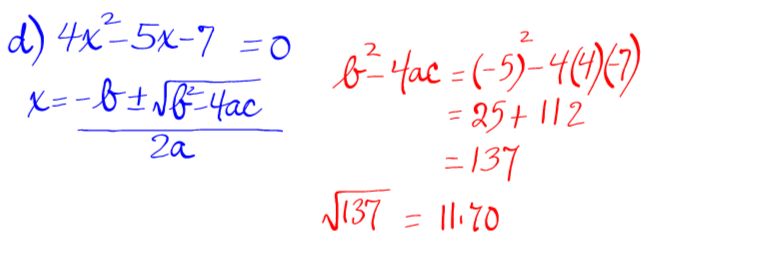 d) 4x²-5x-7 = 0
x = -b ± √b²-4ac
2a
b²-4ac = (-5)²-4(4)(-7)
= 25 + 112
= 137
√137 = 11.70